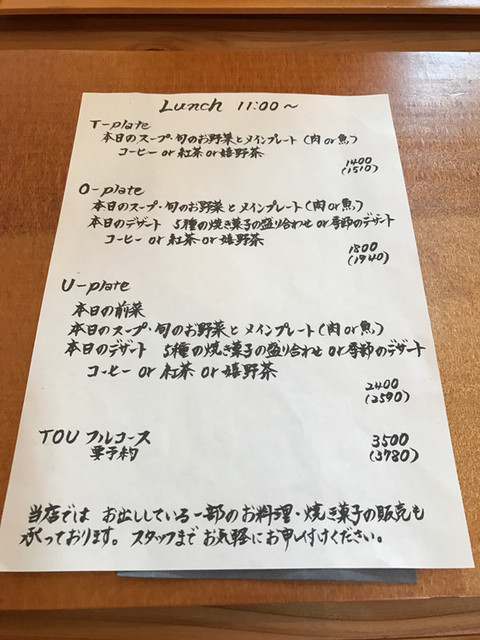 Lunch 11:00〜
T-plate
本日のスープ・旬のお野菜とメインプレート(肉or魚)
コーヒー or 紅茶 or 嬉野茶
1400
(1510)
O-plate
本日のスープ・旬のお野菜とメインプレート(肉or魚)
本日のデザート 5種の焼き菓子の盛り合わせ or 季節のデザート
コーヒー or 紅茶 or 嬉野茶
1800
(1940)
U-plate
本日の前菜
本日のスープ・旬のお野菜とメインプレート(肉or魚)
本日のデザート 5種の焼き菓子の盛り合わせ or 季節のデザート
コーヒー or 紅茶 or 嬉野茶
2400
(2590)
TOU フルコース 3500
要予約 (3780)
当店では お出ししている一部のお料理・焼き菓子の販売も
承っております。スタッフまでお気軽にお申し付けください。